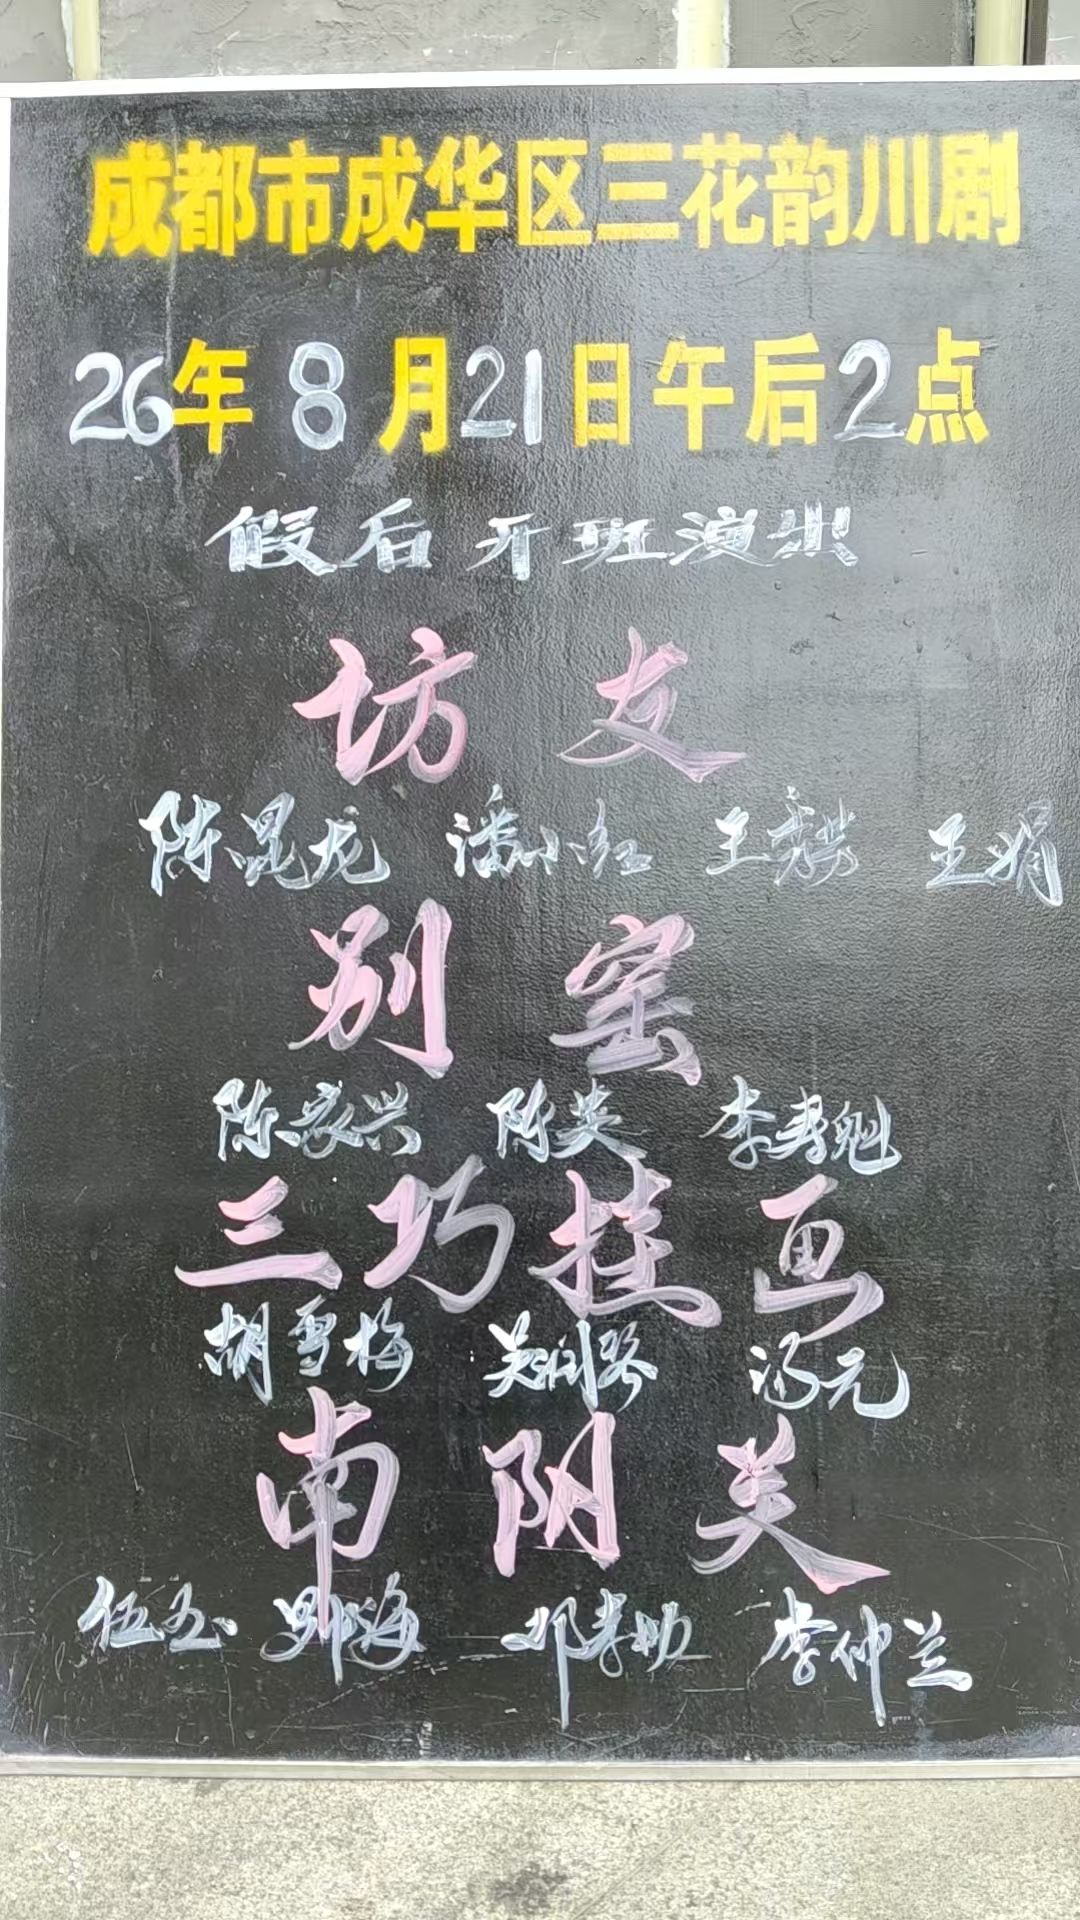 成都市成华区三花韵川剧
26年8月21日午后2点
假后开班演出
坊友
陈昆龙 潘小红 王 王娟
别窑
陈家兴 陈英 李寿魁
三巧挂画
胡雪梅 吴润 汤元
南阴关
伍玉 海 邓孝 李仲兰